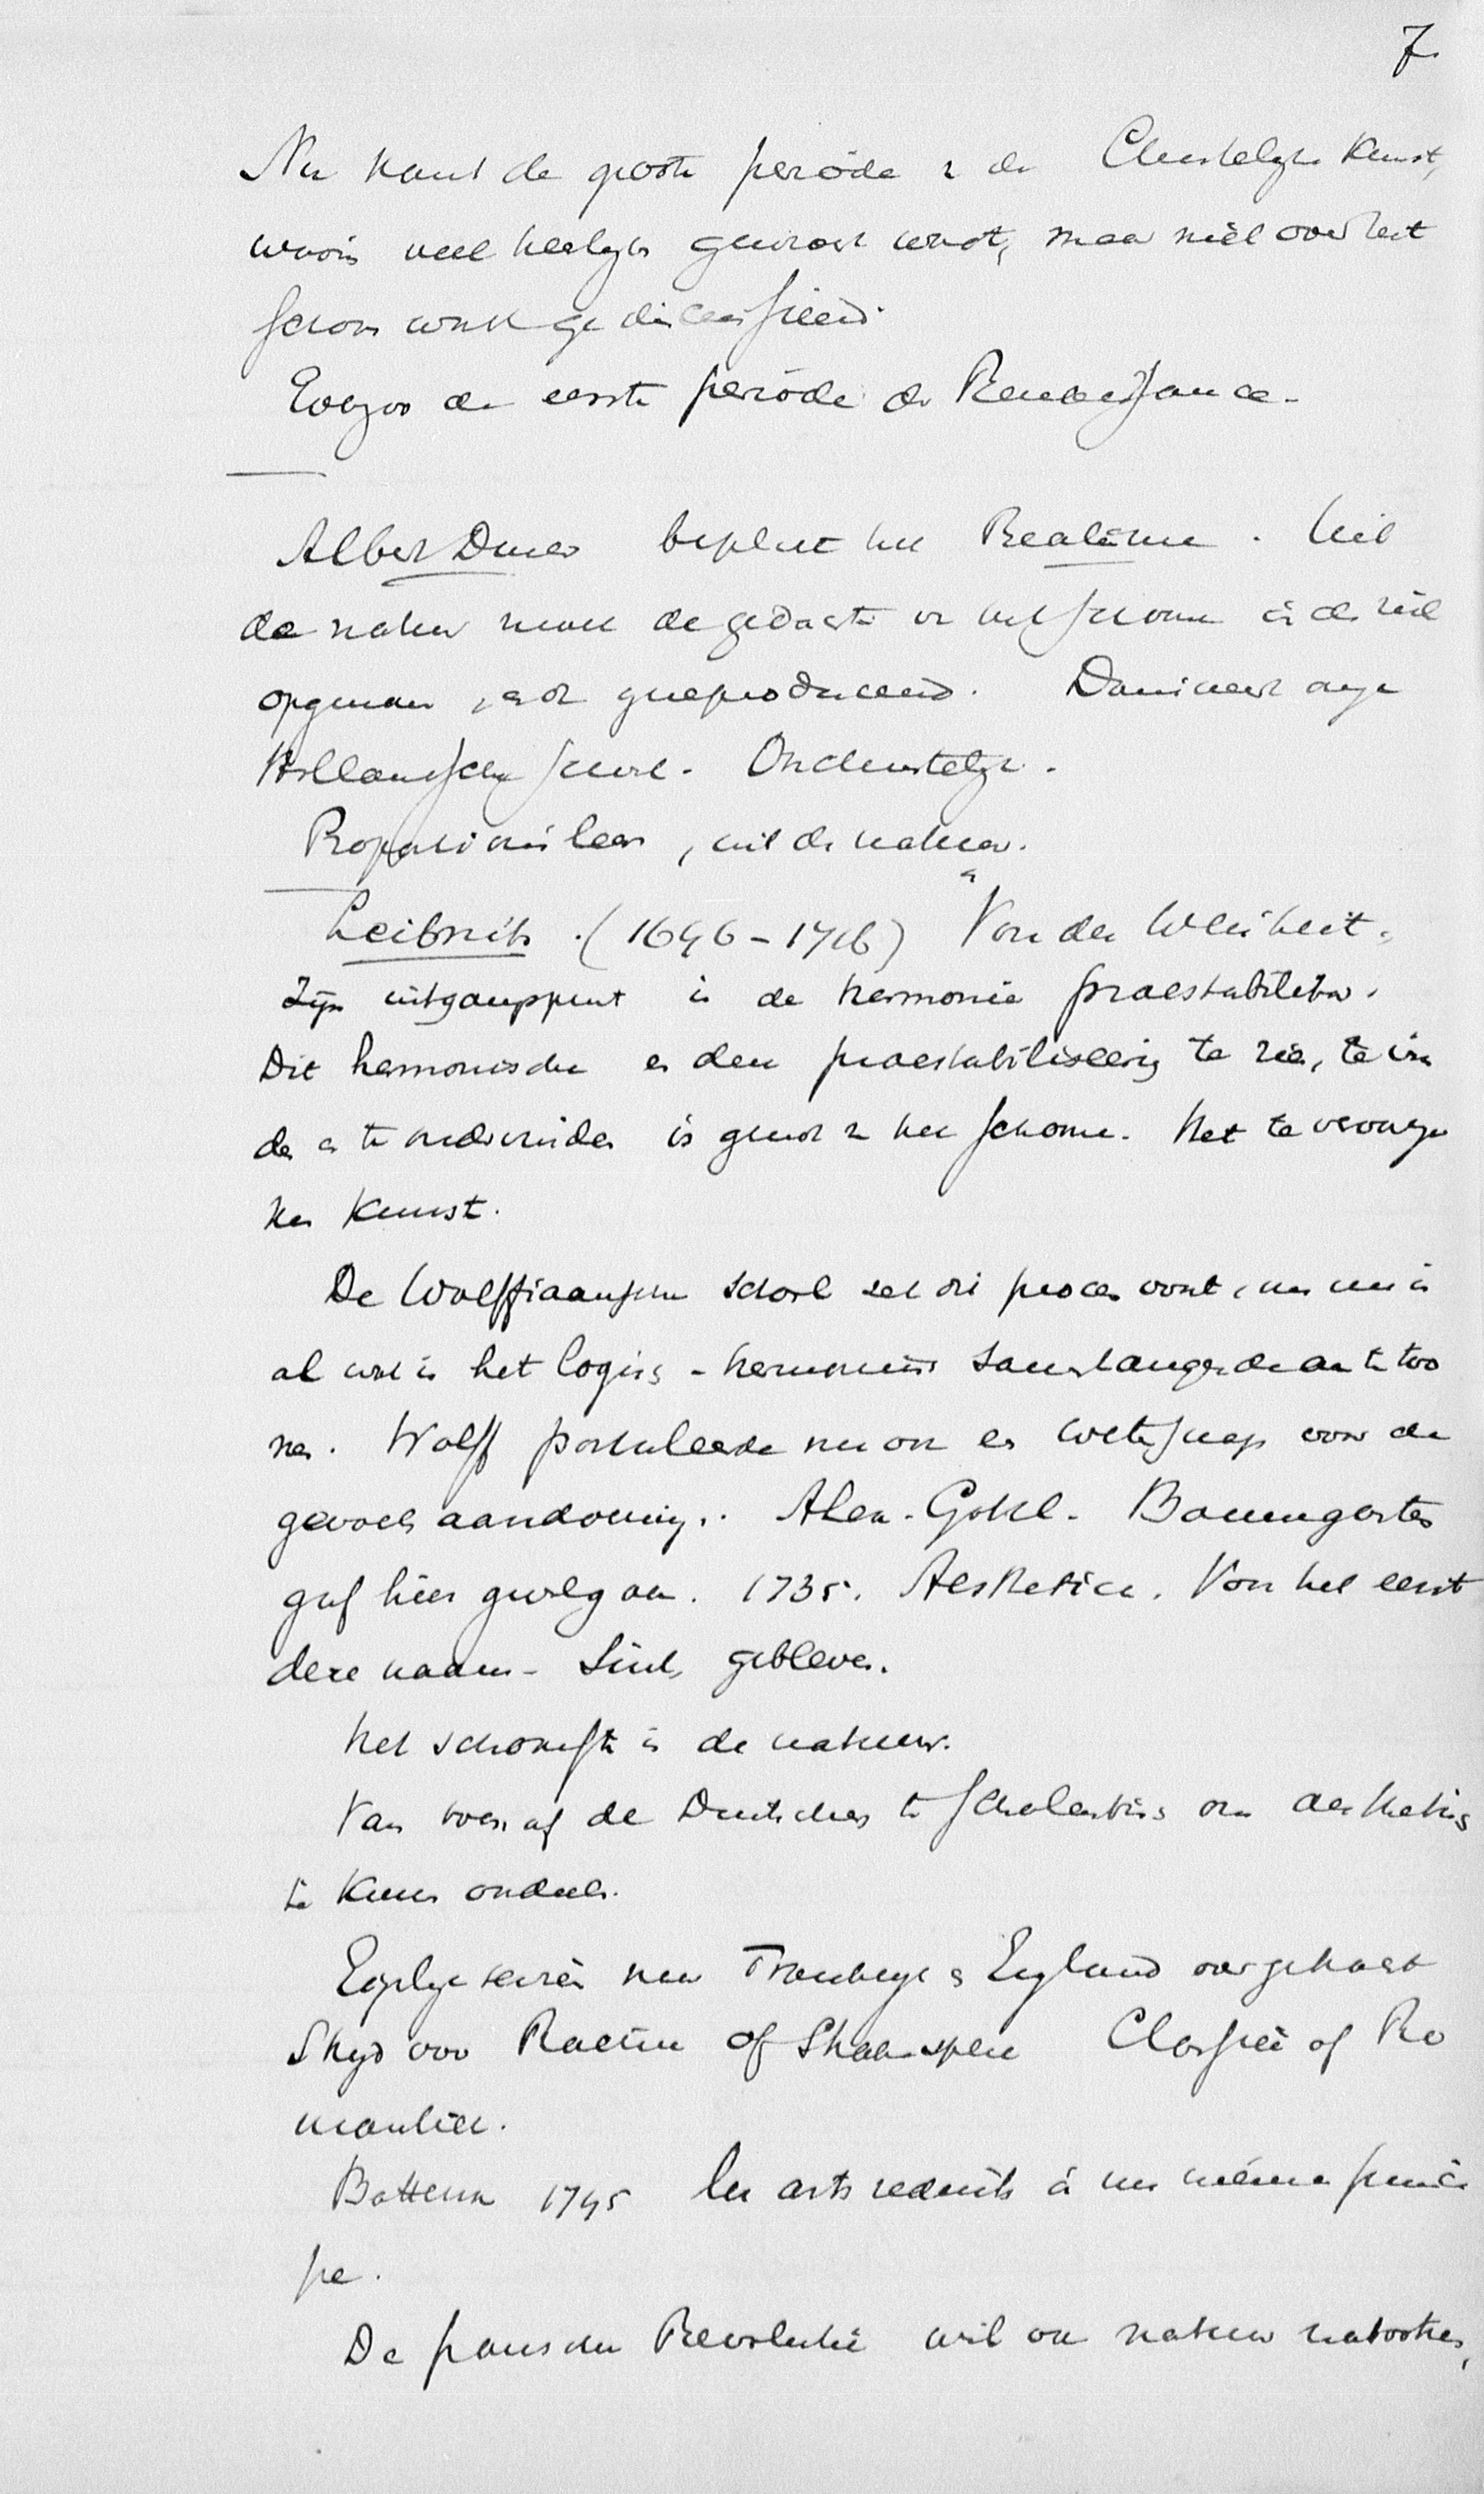 7.
Nu komt de groote periode v de Christelyke Kunst,
waarin veel heerlyks gewrocht wordt, maar niet over het
schoon wordt gediscussieerd.
Evenzoo de eerste periode der Renaissance.
Albert Durer bepleit het Realisme. Uit
de natuur moet de gedachte v het schoone in de ziel
opgenomen, en dr gereproduceerd. Domineert onze
Hollandsche school. Onchristelyk.
Proportieënleer, uit de natuur.
Leibnitz. (1646-1716) "Von der Weisheit"
Zyn uitgangspunt is de harmonia praestabilita.
Dit harmonische en den praestabiliseering te zien, te vin
den en te ondervinden is genot v het schoone. Het te vervangen
is Kunst.
De Wolffiaansche School zet dit proces voort, om in
al wat is het logisch-harmonisch samenhangende aan te too
nen. Wolff postuleerde nu ook en wetenschap voor de
gevoelsaandoening. Alex. Gottl. Baumgarten
gaf hier gevolg aan. 1735. Aesthetica. Voor het eerst
deze naam. Sinds gebleven.
Het schoonste is de natuur.
Van toen af de Duitschers te scholastisch om aesthetisch
te kunnen oordeelen.
Eigenlyk naar Frankryk & England overgebracht
Stryd voor Racine of Shakespere Classiek of Ro
mantiek.
Batteux 1745 les arts reduits à un même princi
pe.
De fransche Revolutie wil ook natuur nabootsen,